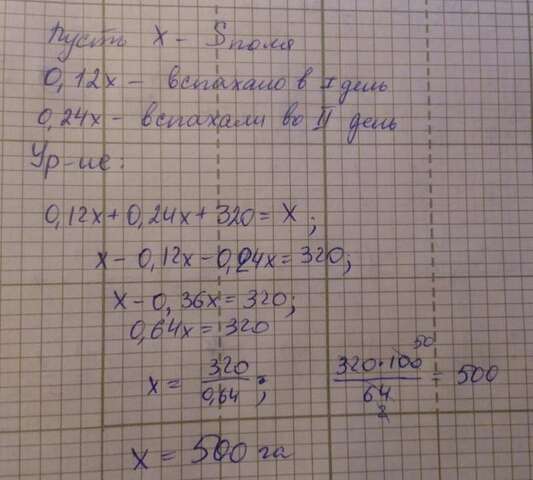 Пусть x - S поля
0,12x - вспахано в I день
0,24x - вспахали во II день
Ур-ие:
0,12x + 0,24x + 320 = x;
x - 0,12x - 0,24x = 320;
x - 0,36x = 320;
0,64x = 320
x = 320/0,64; 320·100/64 = 500
50
2
x = 500 га